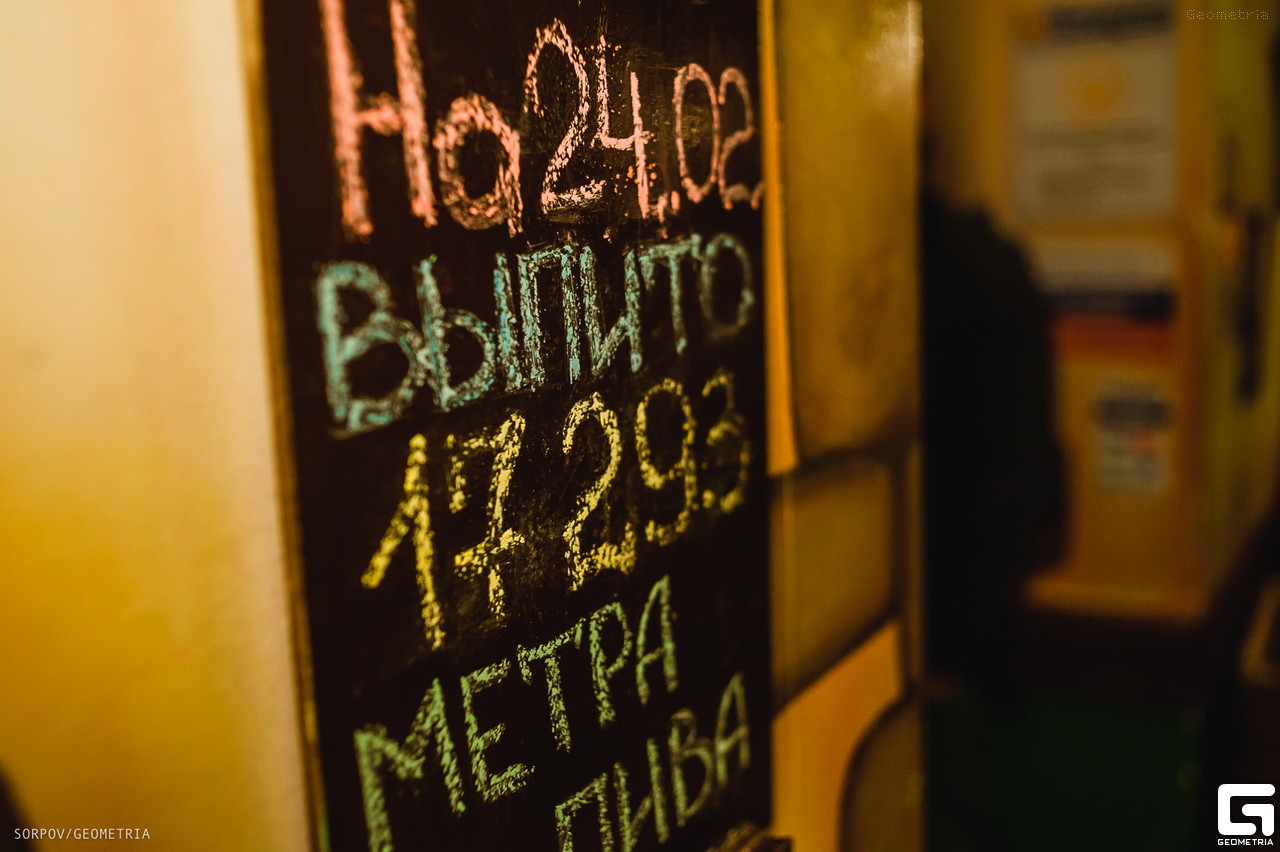 Geometria
На 24.02
ВЫПИТО
17293
МЕТРА
ПИВА
SORPOV/GEOMETRIA
GEOMETRIA